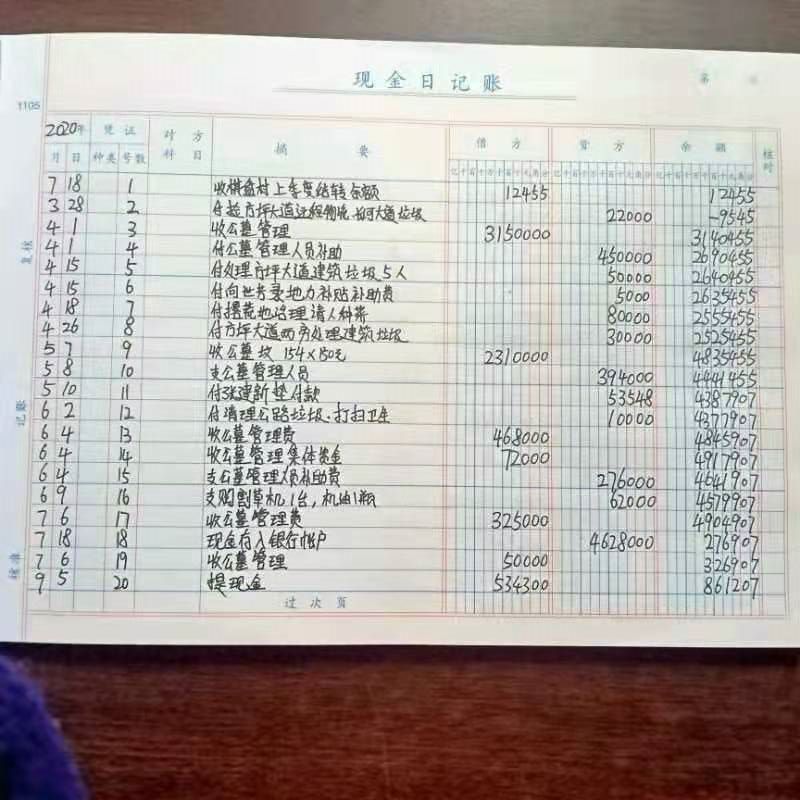 现金日记账
第
1105
2020年 凭证 对方 摘要 借方 贷方 余额 核对
月 日 种类 号数 科目 亿千百十万千百十元角分 亿千百十万千百十元角分 亿千百十万千百十元角分
7 18 1 收棋盘村上季度结转余额 12455 12455
3 28 2 付 市坪大道 大道垃圾 22000 -9545
4 1 3 收公墓管理 3150000 3140455
4 1 4 付公墓管理人员补助 450000 2690455
4 15 5 付处理市坪大道建筑垃圾5人 50000 2640455
4 15 6 付向世 地力补贴补助费 5000 2635455
4 18 7 付 花 管理请人种 80000 2555455
4 26 8 付市坪大道两旁处理建筑垃圾 30000 2525455
5 7 9 收公墓坟 154×150元 2310000 4835455
5 8 10 支公墓管理人员 394000 4441455
5 10 11 付张建新垫付款 53548 4387907
6 2 12 付清理公路垃圾、打扫卫生 10000 4377907
6 4 13 收公墓管理费 468000 4845907
6 4 14 收公墓管理集体资金 72000 4917907
6 4 15 支公墓管理人员补助费 276000 4641907
6 9 16 支购割草机1台,机油1瓶 62000 4579907
7 6 17 收公墓管理费 325000 4904907
7 18 18 现金存入银行帐户 4628000 276907
7 6 19 收公墓管理 50000 326907
9 5 20 提现金 534300 861207
过次页
复核
记账